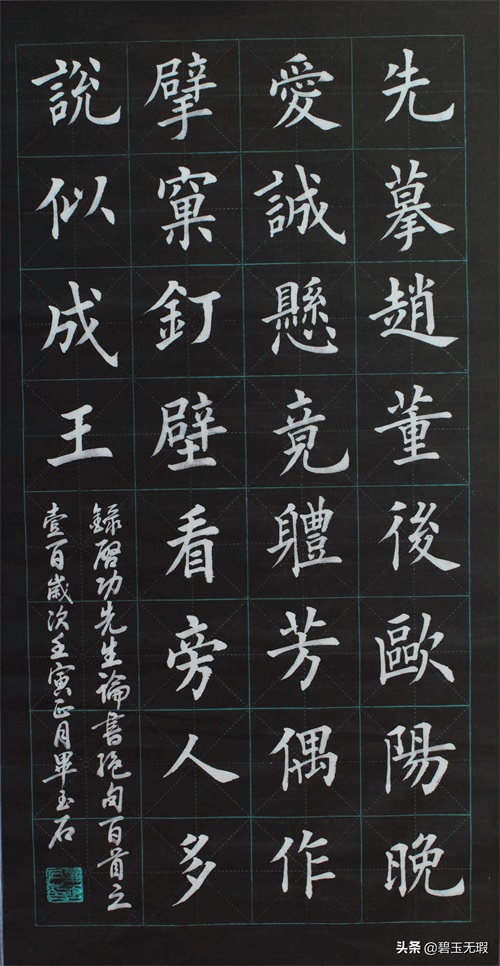 先摹趙董後歐陽晚
愛誠懸竟軆芳偶作
擘窠釘壁看旁人多
說似成王
錄啓功先生論書絕句百首之
壹百歲次壬寅正月畢玉石
头条 @碧玉无瑕